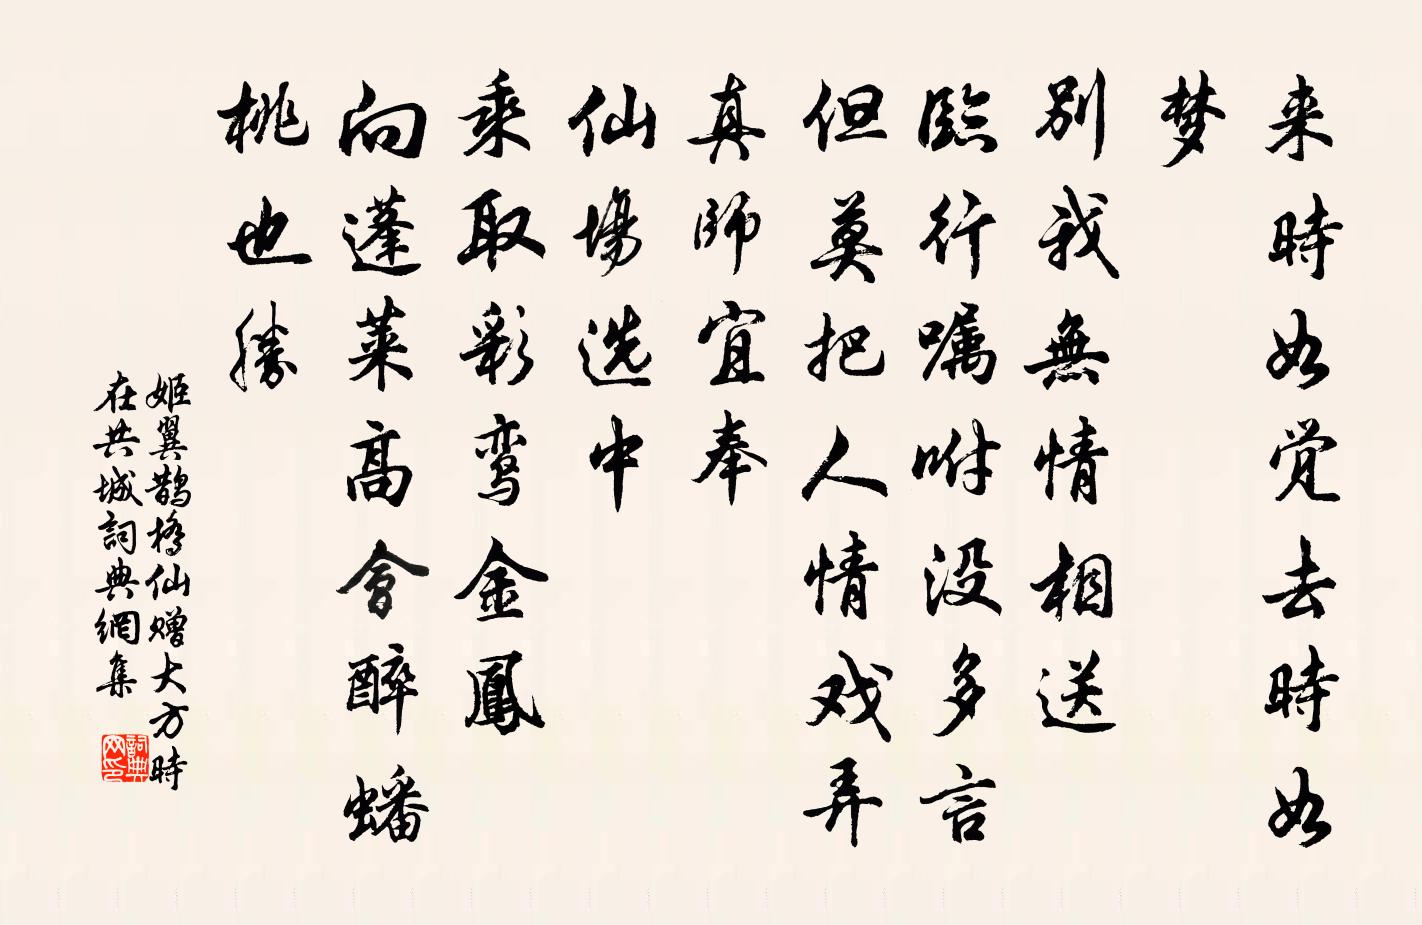 来時如覚去時如
梦
别我無情相送
臨行嘱咐没多言
但莫把人情戏弄
真師宜奉
仙場选中
乘取彩鸾金鳳
向蓬莱高會醉蟠
桃也勝
姬翼鹊橋仙赠大方時
在共城詞典網集
詞典
网印